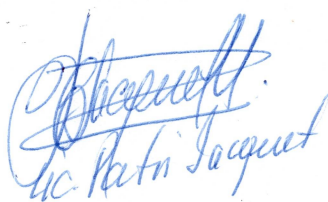 Jacquet
Lic. Patri Jacquet